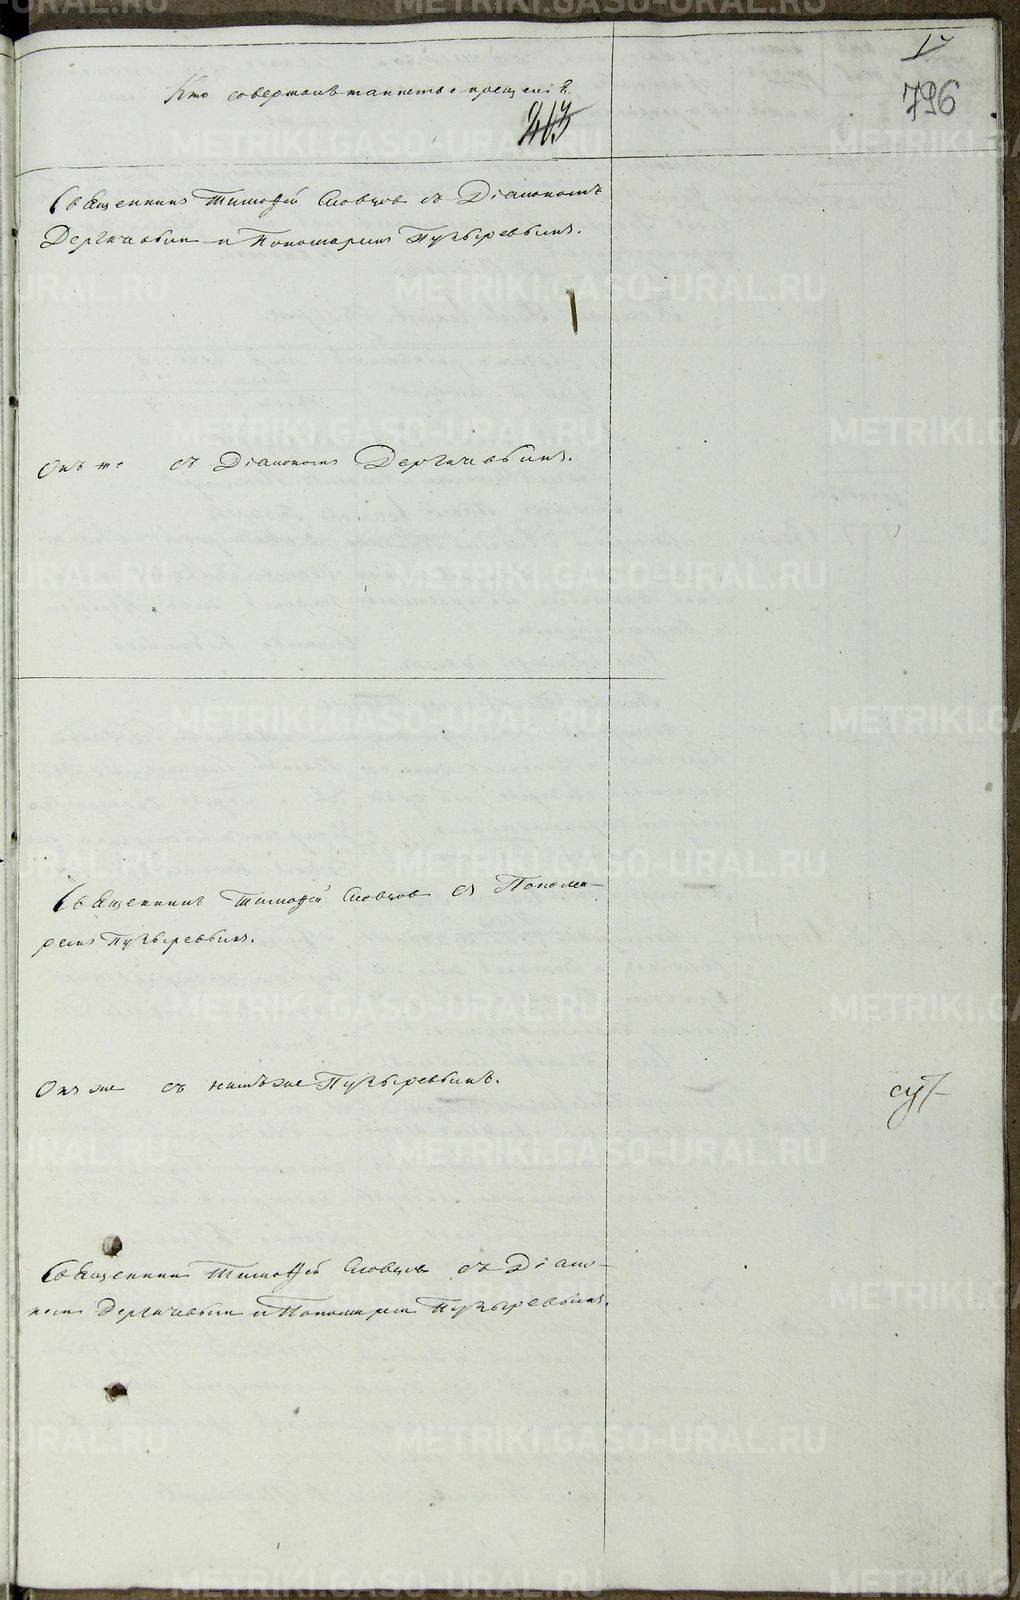 17
796
Кто совершалъ таинство крещенія.
Священникъ Тимофей Словцов съ Діакономъ
Дергачовым и Пономарем Пузыревымъ.
Онъ же съ Діаконом Дергачовымъ.
Священникъ Тимофей Словцов съ Понома-
ремъ Пузыревымъ.
Онъ же съ нимъ же Пузыревымъ.
Священникъ Тимофей Словцов съ Діако-
номъ Дергачевым и Пономарем Пузыревымъ.
METRIKI.GASO-URAL.RU